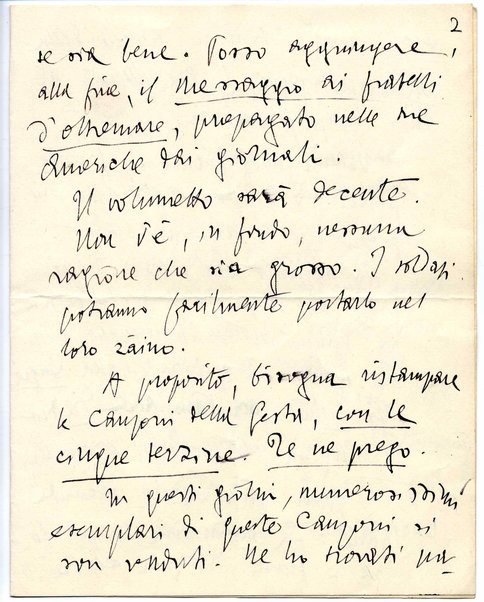 2
se sia bene. Posso aggiungere,
alla fine, il messaggio ai fratelli
d'oltremare, propagato nelle due
Americhe dai giornali.
Il volumetto sarà decente.
Non v'è, in fondo, nessuna
ragione che sia grosso. I soldati
potranno facilmente portarlo nel
loro zaino.
A proposito, bisogna ristampare
le Canzoni della Gesta, con le
cinque terzine. Te ne prego.
In questi giorni, numerosissimi
esemplari di queste Canzoni si
son venduti. Ne ho trovati pa-